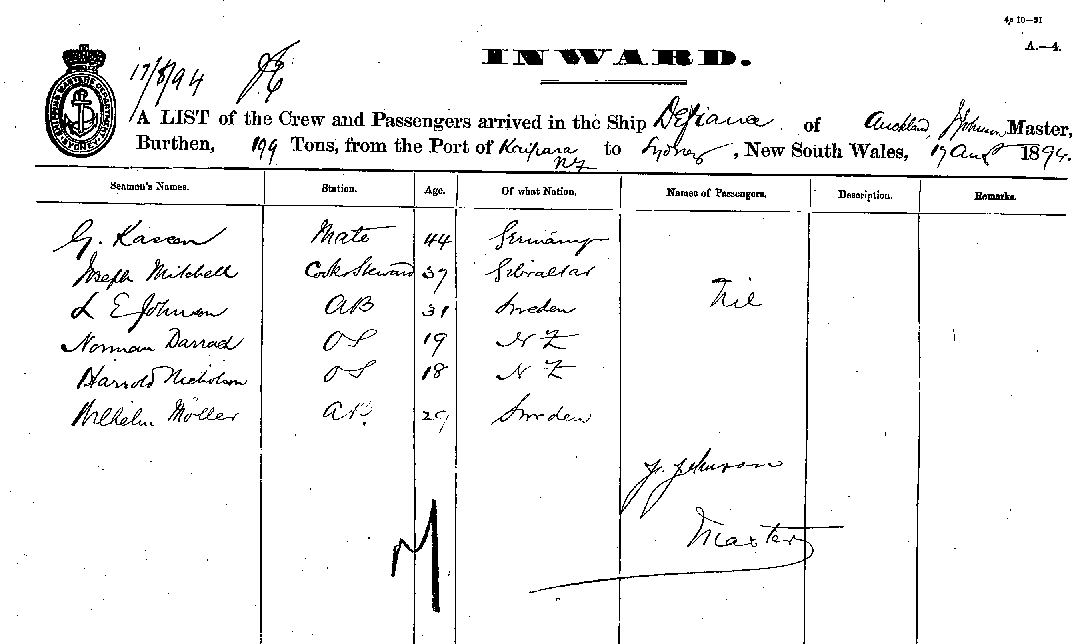 4p 10—91
A.—4.
INWARD.
17/8/94
A LIST of the Crew and Passengers arrived in the Ship Defiance of Auckland, J Johnson Master,
Burthen, 199 Tons, from the Port of Kaipara NZ to Sydney, New South Wales, 17 Aug 1894.
Seamen's Names. Station. Age. Of what Nation. Names of Passengers. Description. Remarks.
G. Mate 44 Germany
Joseph Mitchell Cook & Steward 37 Gibraltar
Nil
L E Johnson AB 31 Sweden
Norman Darrach OS 19 N Z
Harrold Nicholson OS 18 N Z
Wilhelm Möller AB. 29 Sweden
J. Johnson
Master